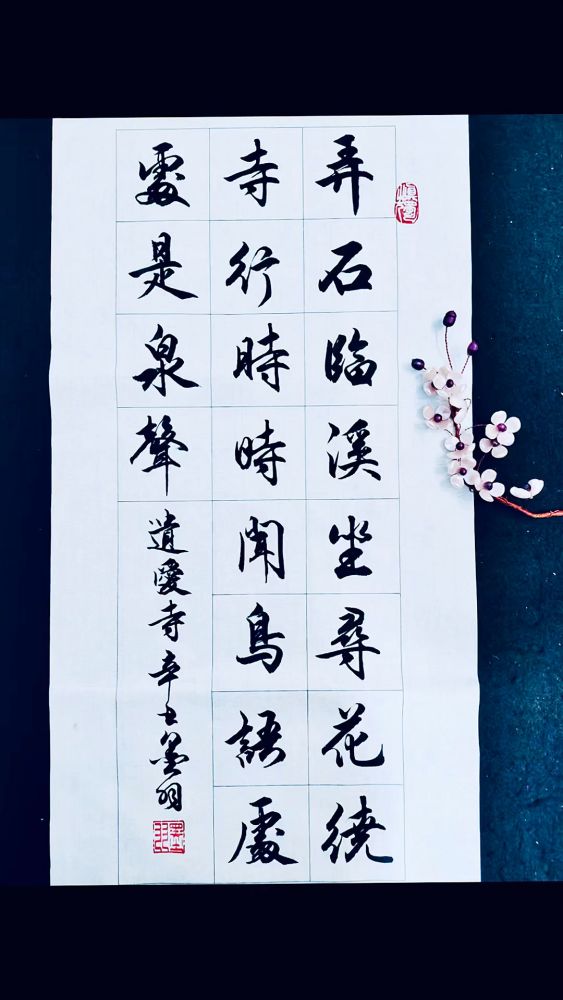 弄石臨溪坐尋花繞
寺行時時聞鳥語處
處是泉聲
遺愛寺辛丑墨羽